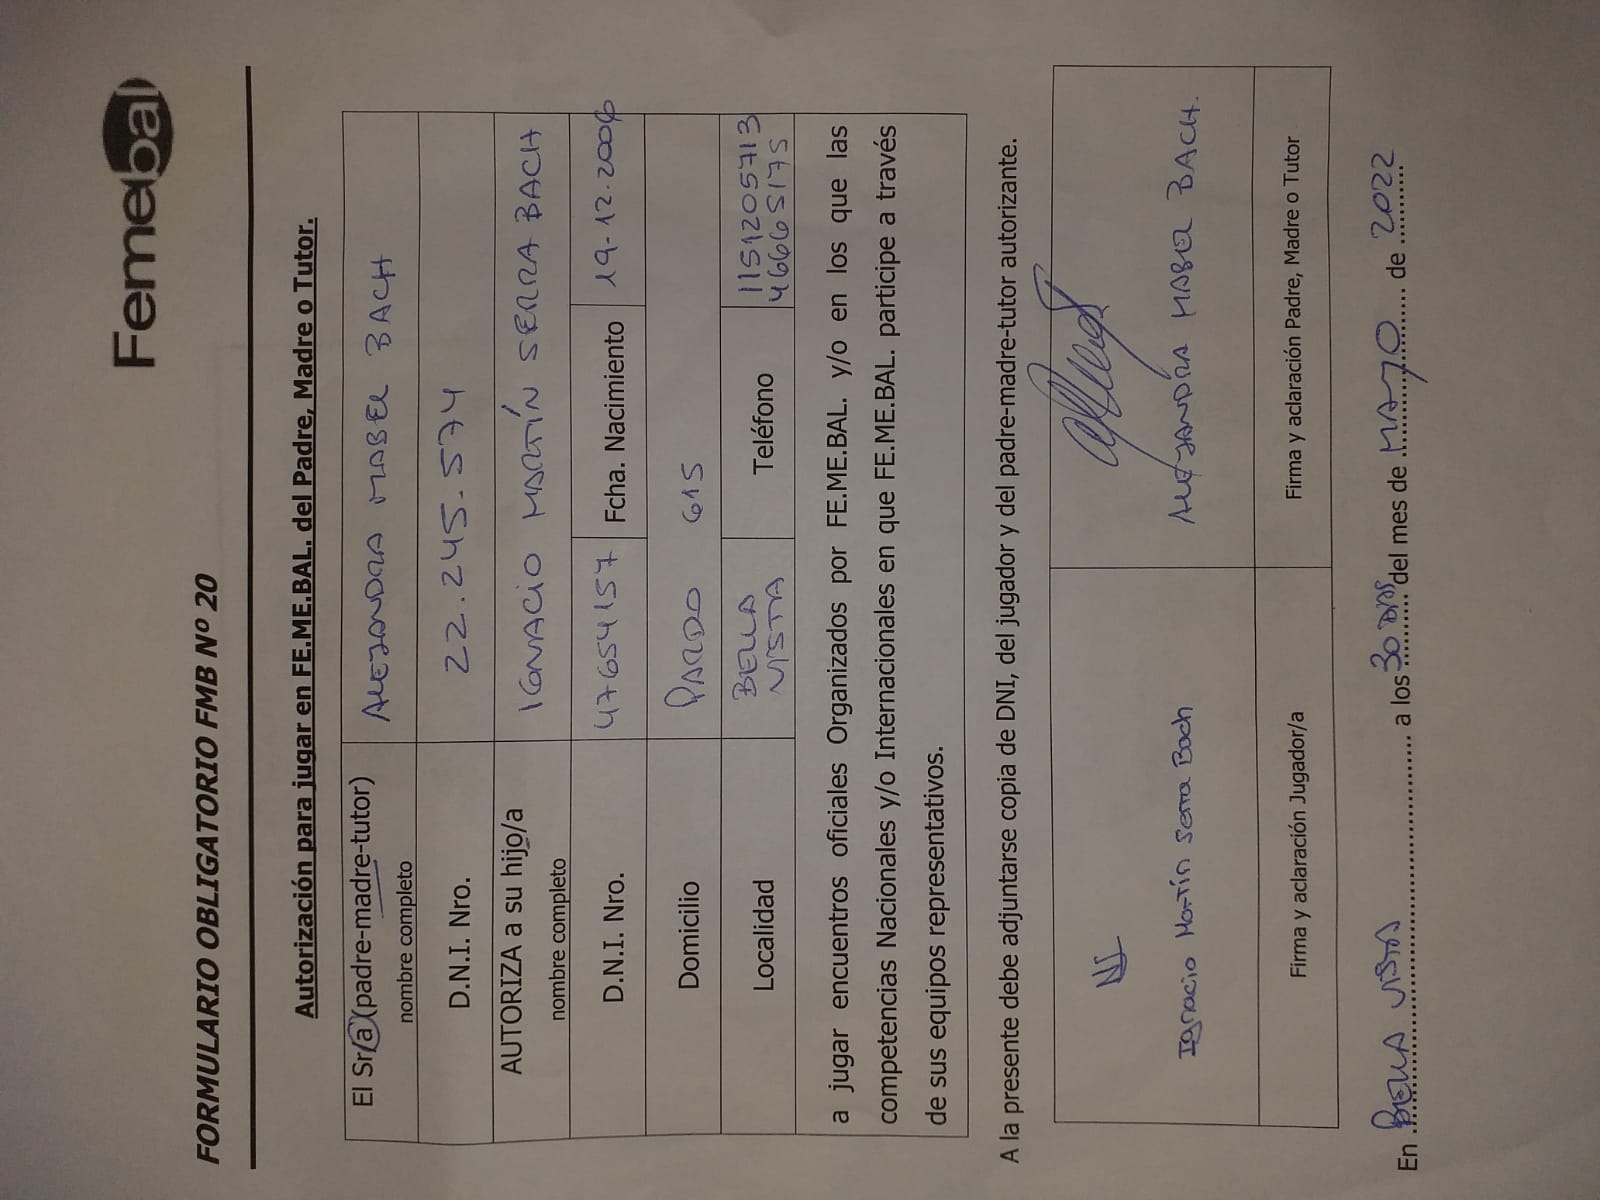 Femebal
FORMULARIO OBLIGATORIO FMB Nº 20
Autorización para jugar en FE.ME.BAL. del Padre, Madre o Tutor.
El Sr(a)(padre-madre-tutor)
nombre completo
ALEJANDRA MABEL BACH
D.N.I. Nro.
22.245.574
AUTORIZA a su hijo/a
nombre completo
IGNACIO MARTÍN SERRA BACH
D.N.I. Nro.
47654157
Fcha. Nacimiento
19-12-2006
Domicilio
PARDO 615
Localidad
BELLA
VISTA
Teléfono
1151205713
46665175
a jugar encuentros oficiales Organizados por FE.ME.BAL. y/o en los que las
competencias Nacionales y/o Internacionales en que FE.ME.BAL. participe a través
de sus equipos representativos.
A la presente debe adjuntarse copia de DNI, del jugador y del padre-madre-tutor autorizante.
Ignacio Martín Serra Bach
ALEJANDRA MABEL BACH.
Firma y aclaración Jugador/a
Firma y aclaración Padre, Madre o Tutor
En BELLA VISTA a los 30 DÍAS del mes de MAYO de 2022